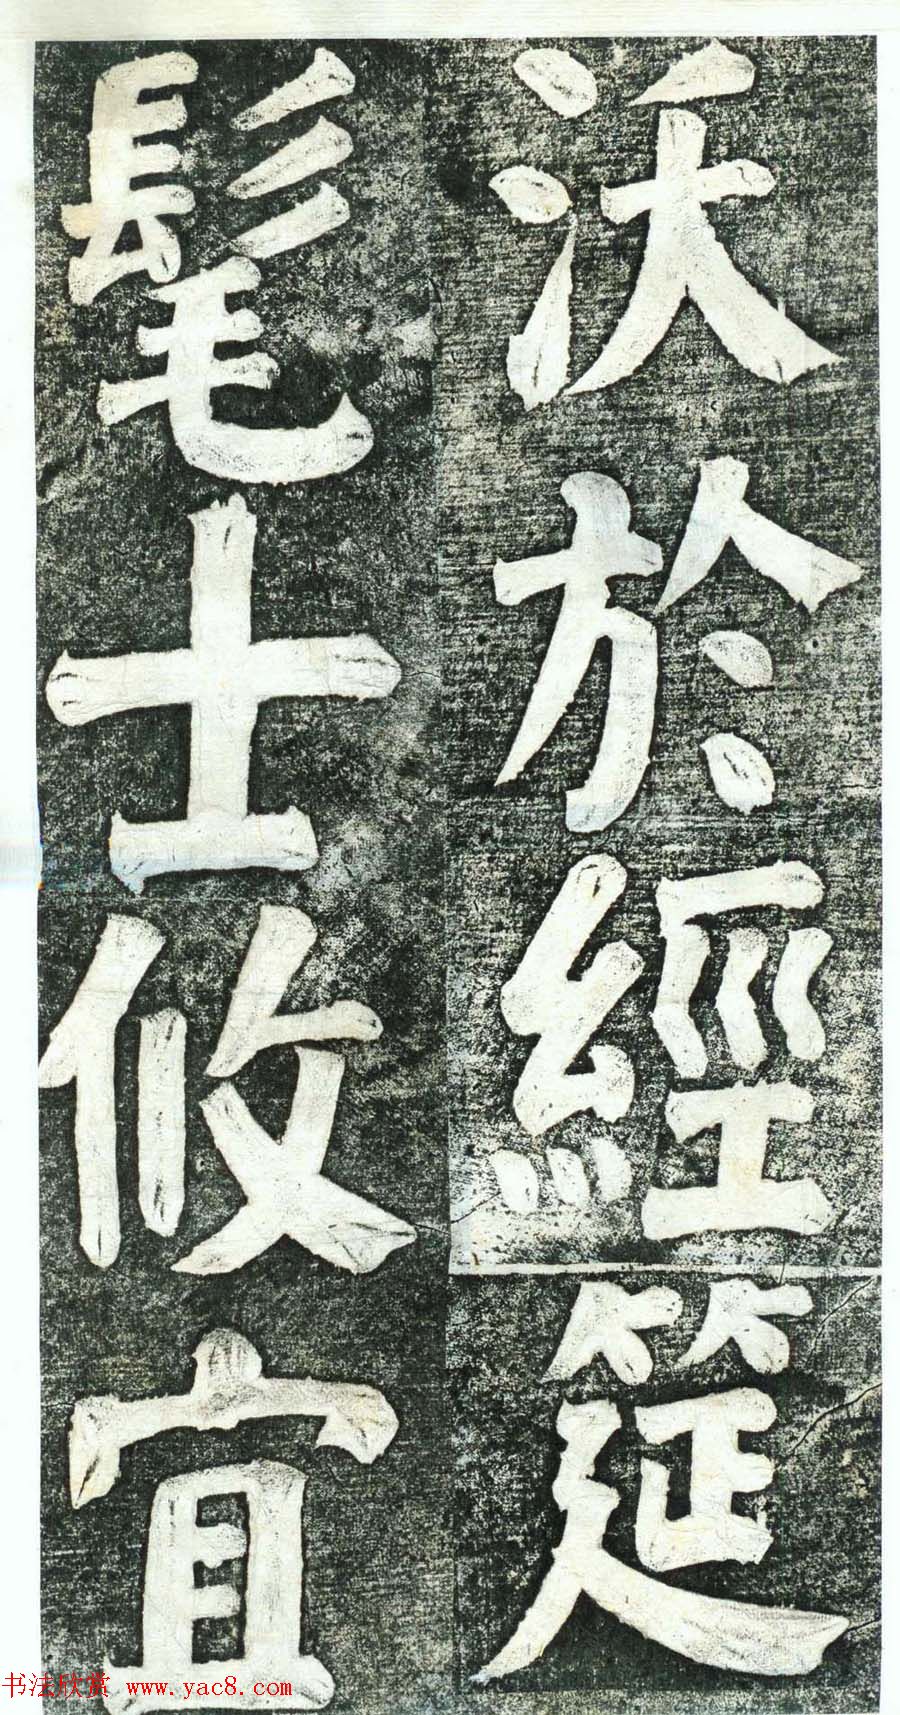 沃於經筵
髦士攸宜
书法欣赏 www.yac8.com